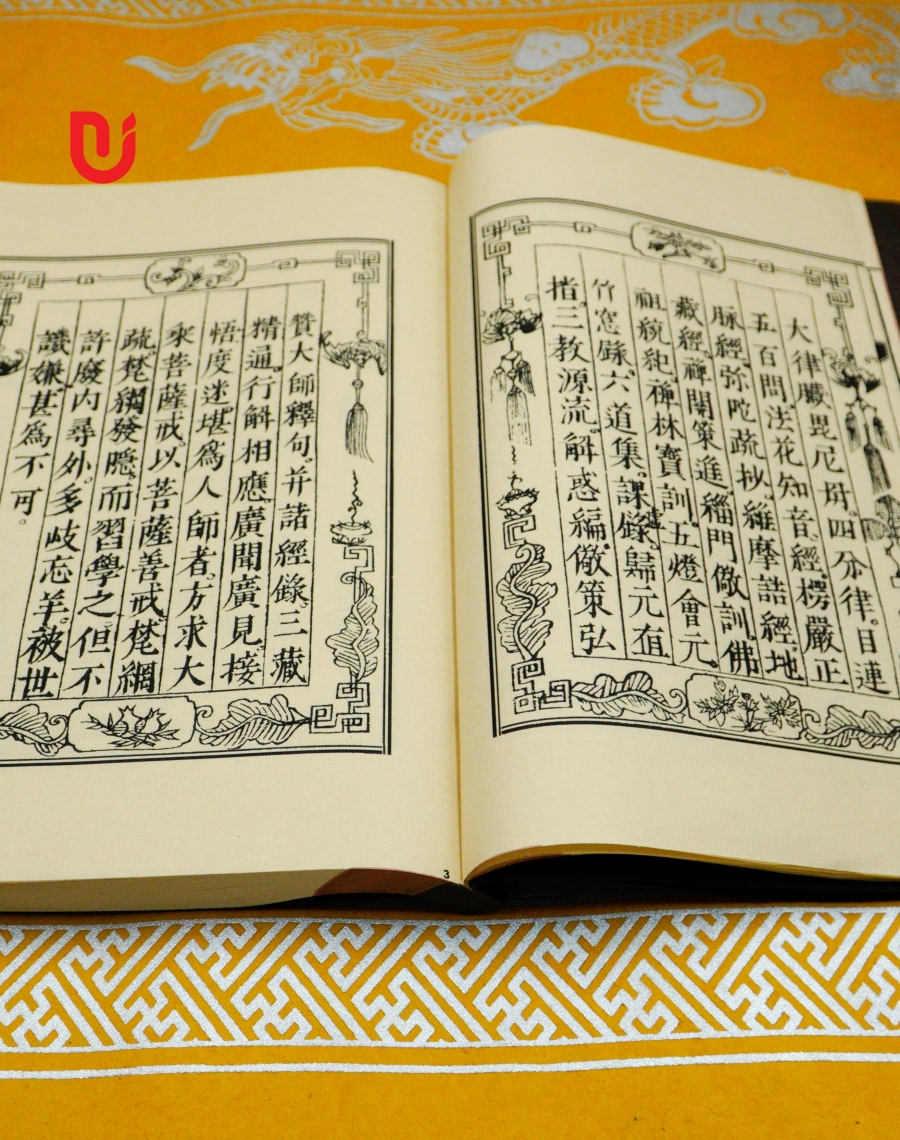 大律嚴毘尼四分律。目連
五百問。法花知音。經楞嚴正
脉經。弥陀疏抄。維摩詰經。地
藏經。禪関策進。緇門儆訓。佛
祖統紀。禅林寶訓。五燈會元。
竹窓錄。六道集。課錄。歸元直
指。三教源流。觧惑編。儆策弘
贊大師釋句。并諸經錄。三藏
精通。行觧相應。廣聞廣見。接
悟度迷。堪爲人師者。方求大
乘菩薩戒。以菩薩善戒。梵網
疏。梵網發隱。而習學之。但不
許廢内尋外。多岐忘羊。被世
譏嫌。甚爲不可。
3